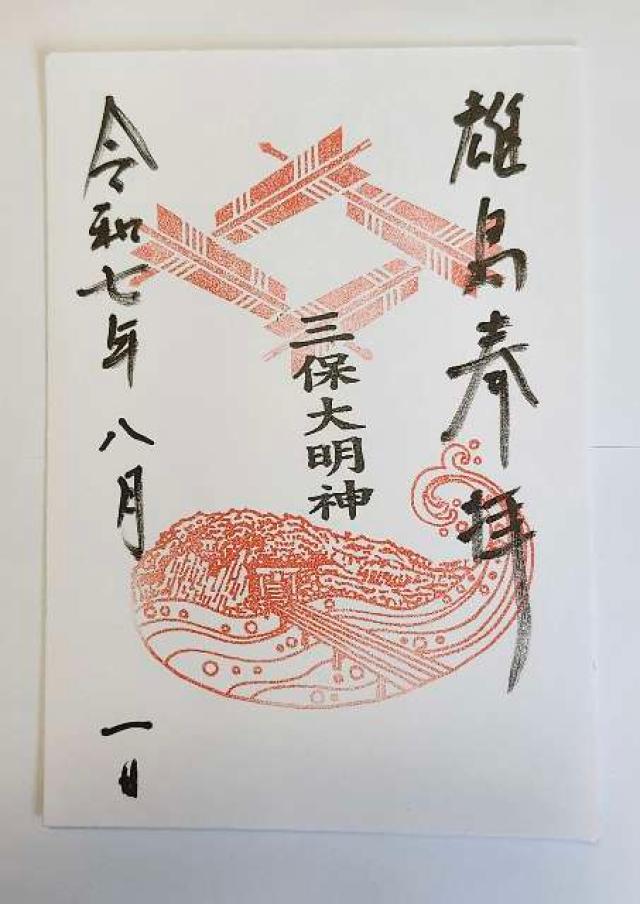 雄島奉拝
三保大明神
令和七年八月一日